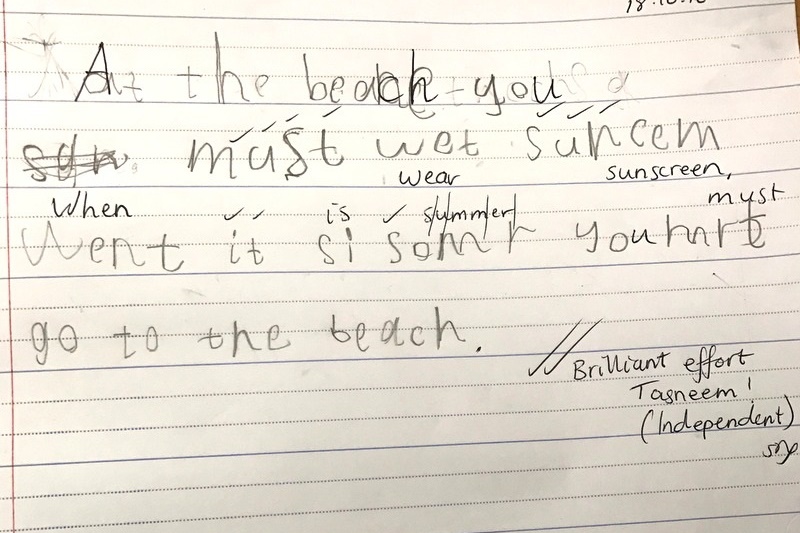 At the beach you
must wet suncem
wear sunscreen,
When is summer must
Went it si somr youmrt
go to the beach.
Brilliant effort
Tasneem!
(Independent)